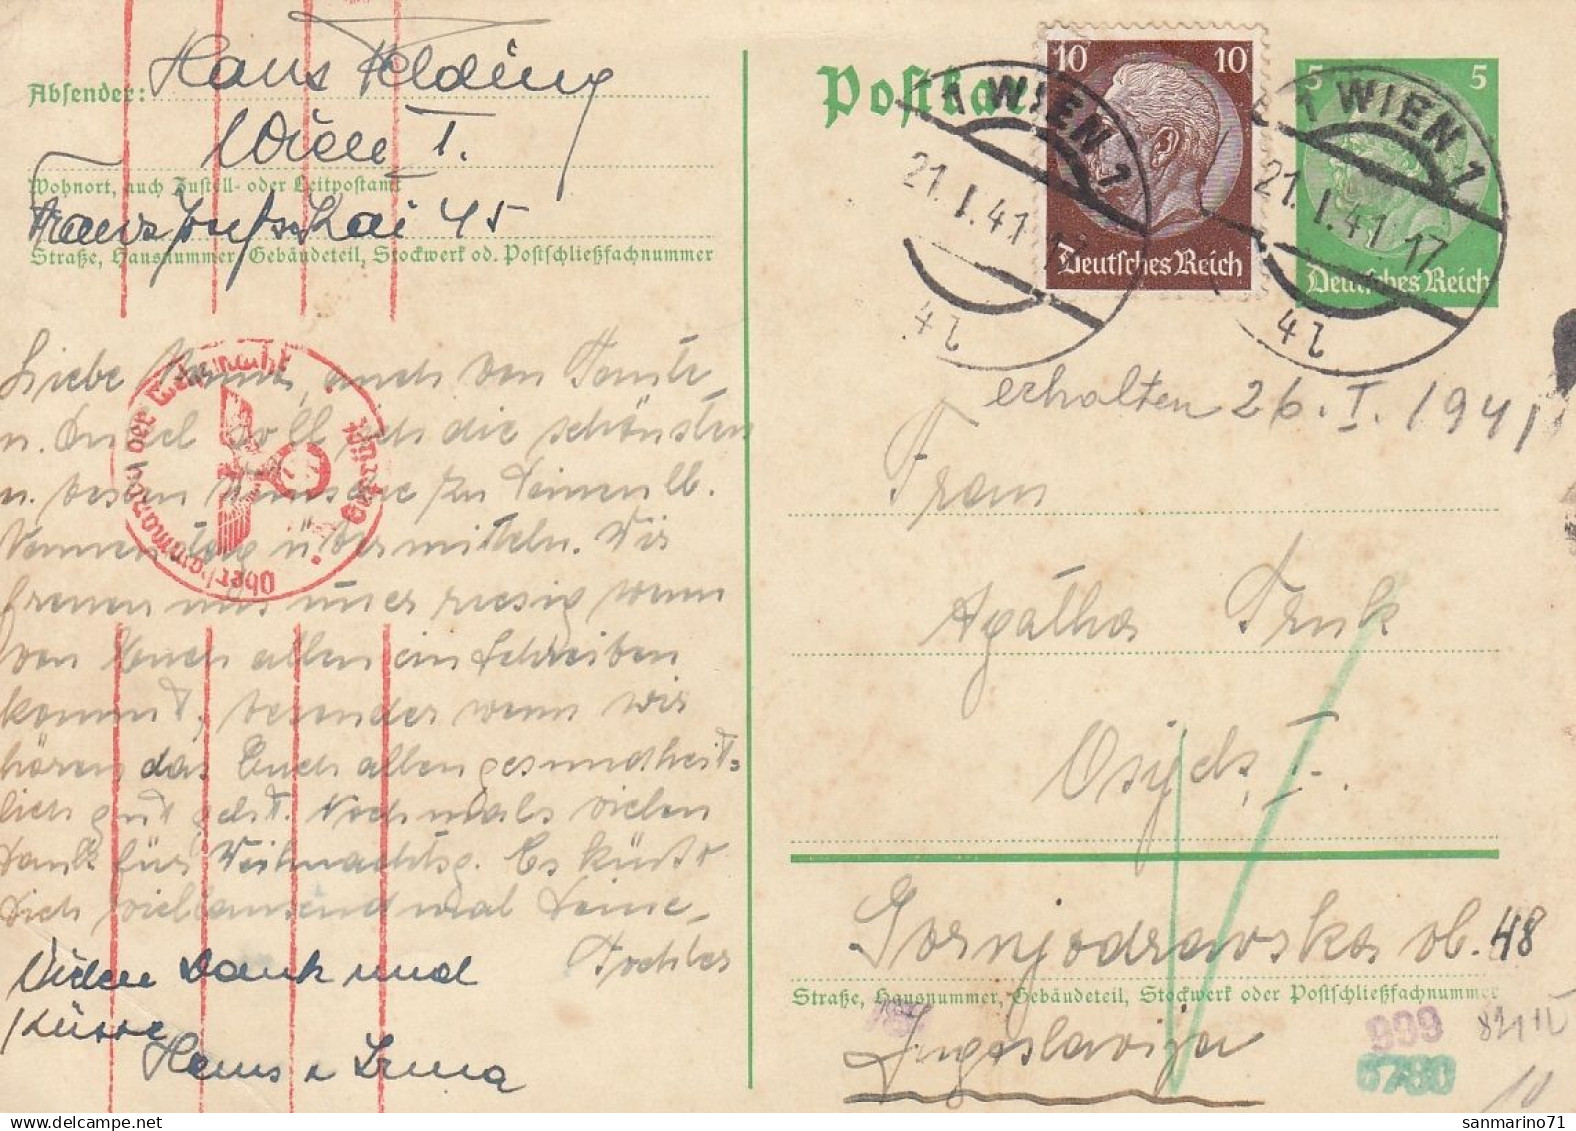 Absender: Hans Felding
Wien I.
Wohnort, auch Zustell- oder Leitpostamt
Franz Josefs Kai 45
Straße, Hausnummer, Gebäudeteil, Stockwerk od. Postschließfachnummer
Liebe Mama, auch von Tante
u. Onkel soll ich die schönsten
u. besten Wünsche zu Deinem lb.
Namenstag übermitteln. Wir
freuen uns immer riesig wenn
von Euch allen ein Schreiben
kommt, besonder wenn wir
hören das Euch allen gesundheit-
lich gut geht. Nochmals vielen
Dank für Weihnachtsg. Es küsst
Dich vieltausendmal Deine
Tochter
Vielen Dank und
Küsse
Hans u Irma
Oberkommando der Wehrmacht
Geprüft
Postkarte
10 10
Deutsches Reich
5 5
Deutsches Reich
1 WIEN 1
21.1.41 17
4 l
1 WIEN 1
21.1.41 17
4 l
erhalten 26.I.1941
Frau
Agatha Truk
Osijek, I.
Gornjodravska ob. 48
Straße, Hausnummer, Gebäudeteil, Stockwerk oder Postschließfachnummer
Jugoslavija
999
6780
10
sanmarino71